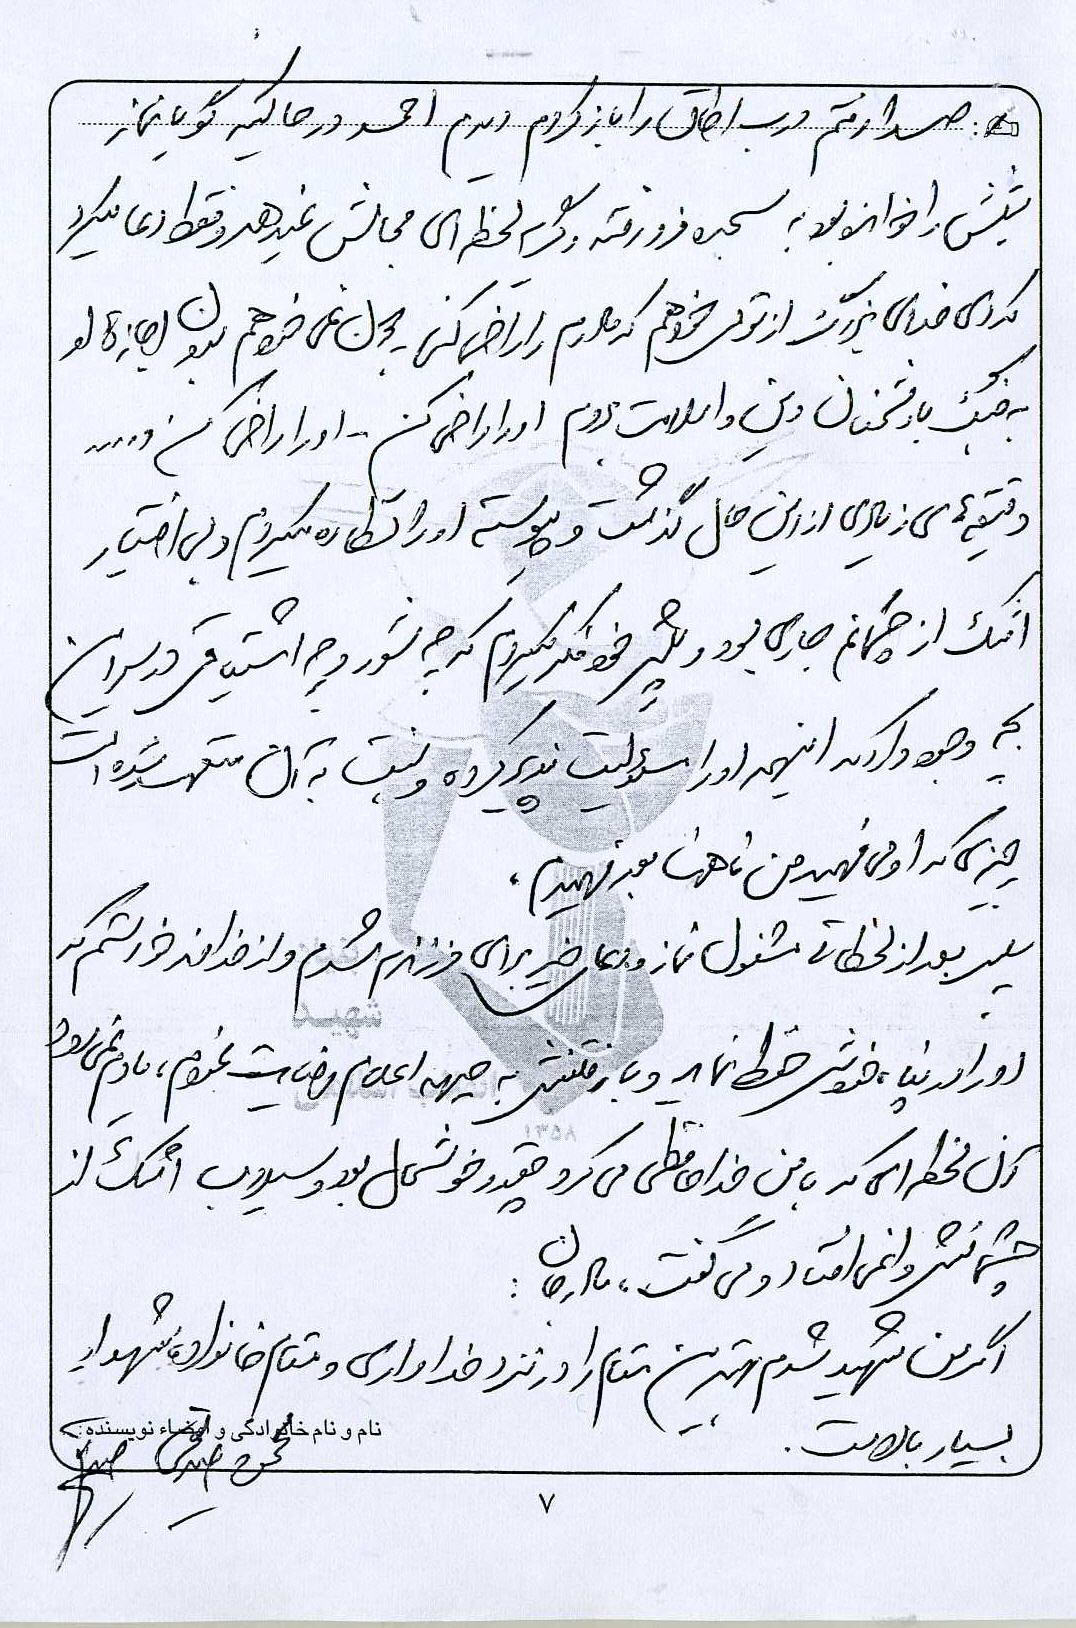 صدا رفتم درب اطاق را باز کردم دیدم احمد در حالیکه گویا نماز
شبش را خوانده بود به سجده فرو رفته و گریه لحظه‌ای مجالش نمیدهد و فقط دعا میکرد
که ای خدای بزرگ از تو می‌خواهم که مادرم را راضی کنی چون نمی‌خواهم بدون اجازهٔ او
به جنگ با دشمنان دین و اسلامت بروم او را راضی کن - او را راضی کن و.....
دقیقه‌های زیادی از این حال گذشت و پیوسته او را نظاره میکردم و بی‌اختیار
اشک از چشمانم جاری بود و پیش خود فکر میکردم که چه شور و چه اشتیاقی در سر این
بچه وجود دارد که اینهمه او را مسئولیت پذیر کرده و نسبت به آن متعهد شده است
چیزی که او می‌فهمید من تا مدتها بعد فهمیدم،
پس بعد از لحظاتی مشغول نماز و دعای خیر برای فرزندم شدم و از خداوند خواستم که
او را در پناه خویش حفظ نماید و با رفتنش به جبهه اعلام رضایت نمودم، یادم نمی‌رود
آن لحظه‌ای که با من خداحافظی می‌کرد چقدر خوشحال بود و سیلاب اشک از
چشمانش وا نمی‌افتاد و می‌گفت، مادرجان :
اگر من شهید شدم بهترین مقام را در نزد خدا داری و مقام خانوادهٔ شهدا
بسیار بالاست.
نام و نام خانوادگی و امضاء نویسنده:
شهید
۱۳۵۸
۷